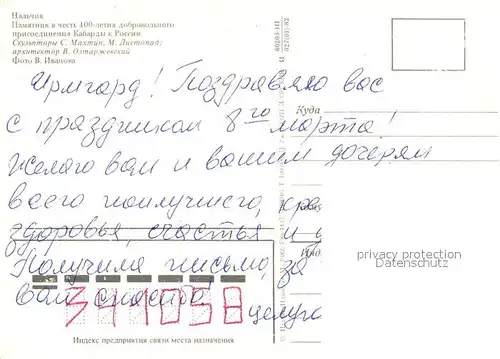 Нальчик
Памятник в честь 400-летия добровольного
присоединения Кабарды к России
Скульпторы С. Махтин, М. Листопад;
архитектор В. Олтаржевский
Фото В. Иванова
Ирмгард! Поздравляю вас
с праздником 8го марта!
Желаю вам и вашим дочерям
всего наилучшего,
здоровья, счастья и
Получила письмо, за
вам спасибо!
целую
341038
Индекс предприятия связи места назначения
Куда
privacy protection
Datenschutz